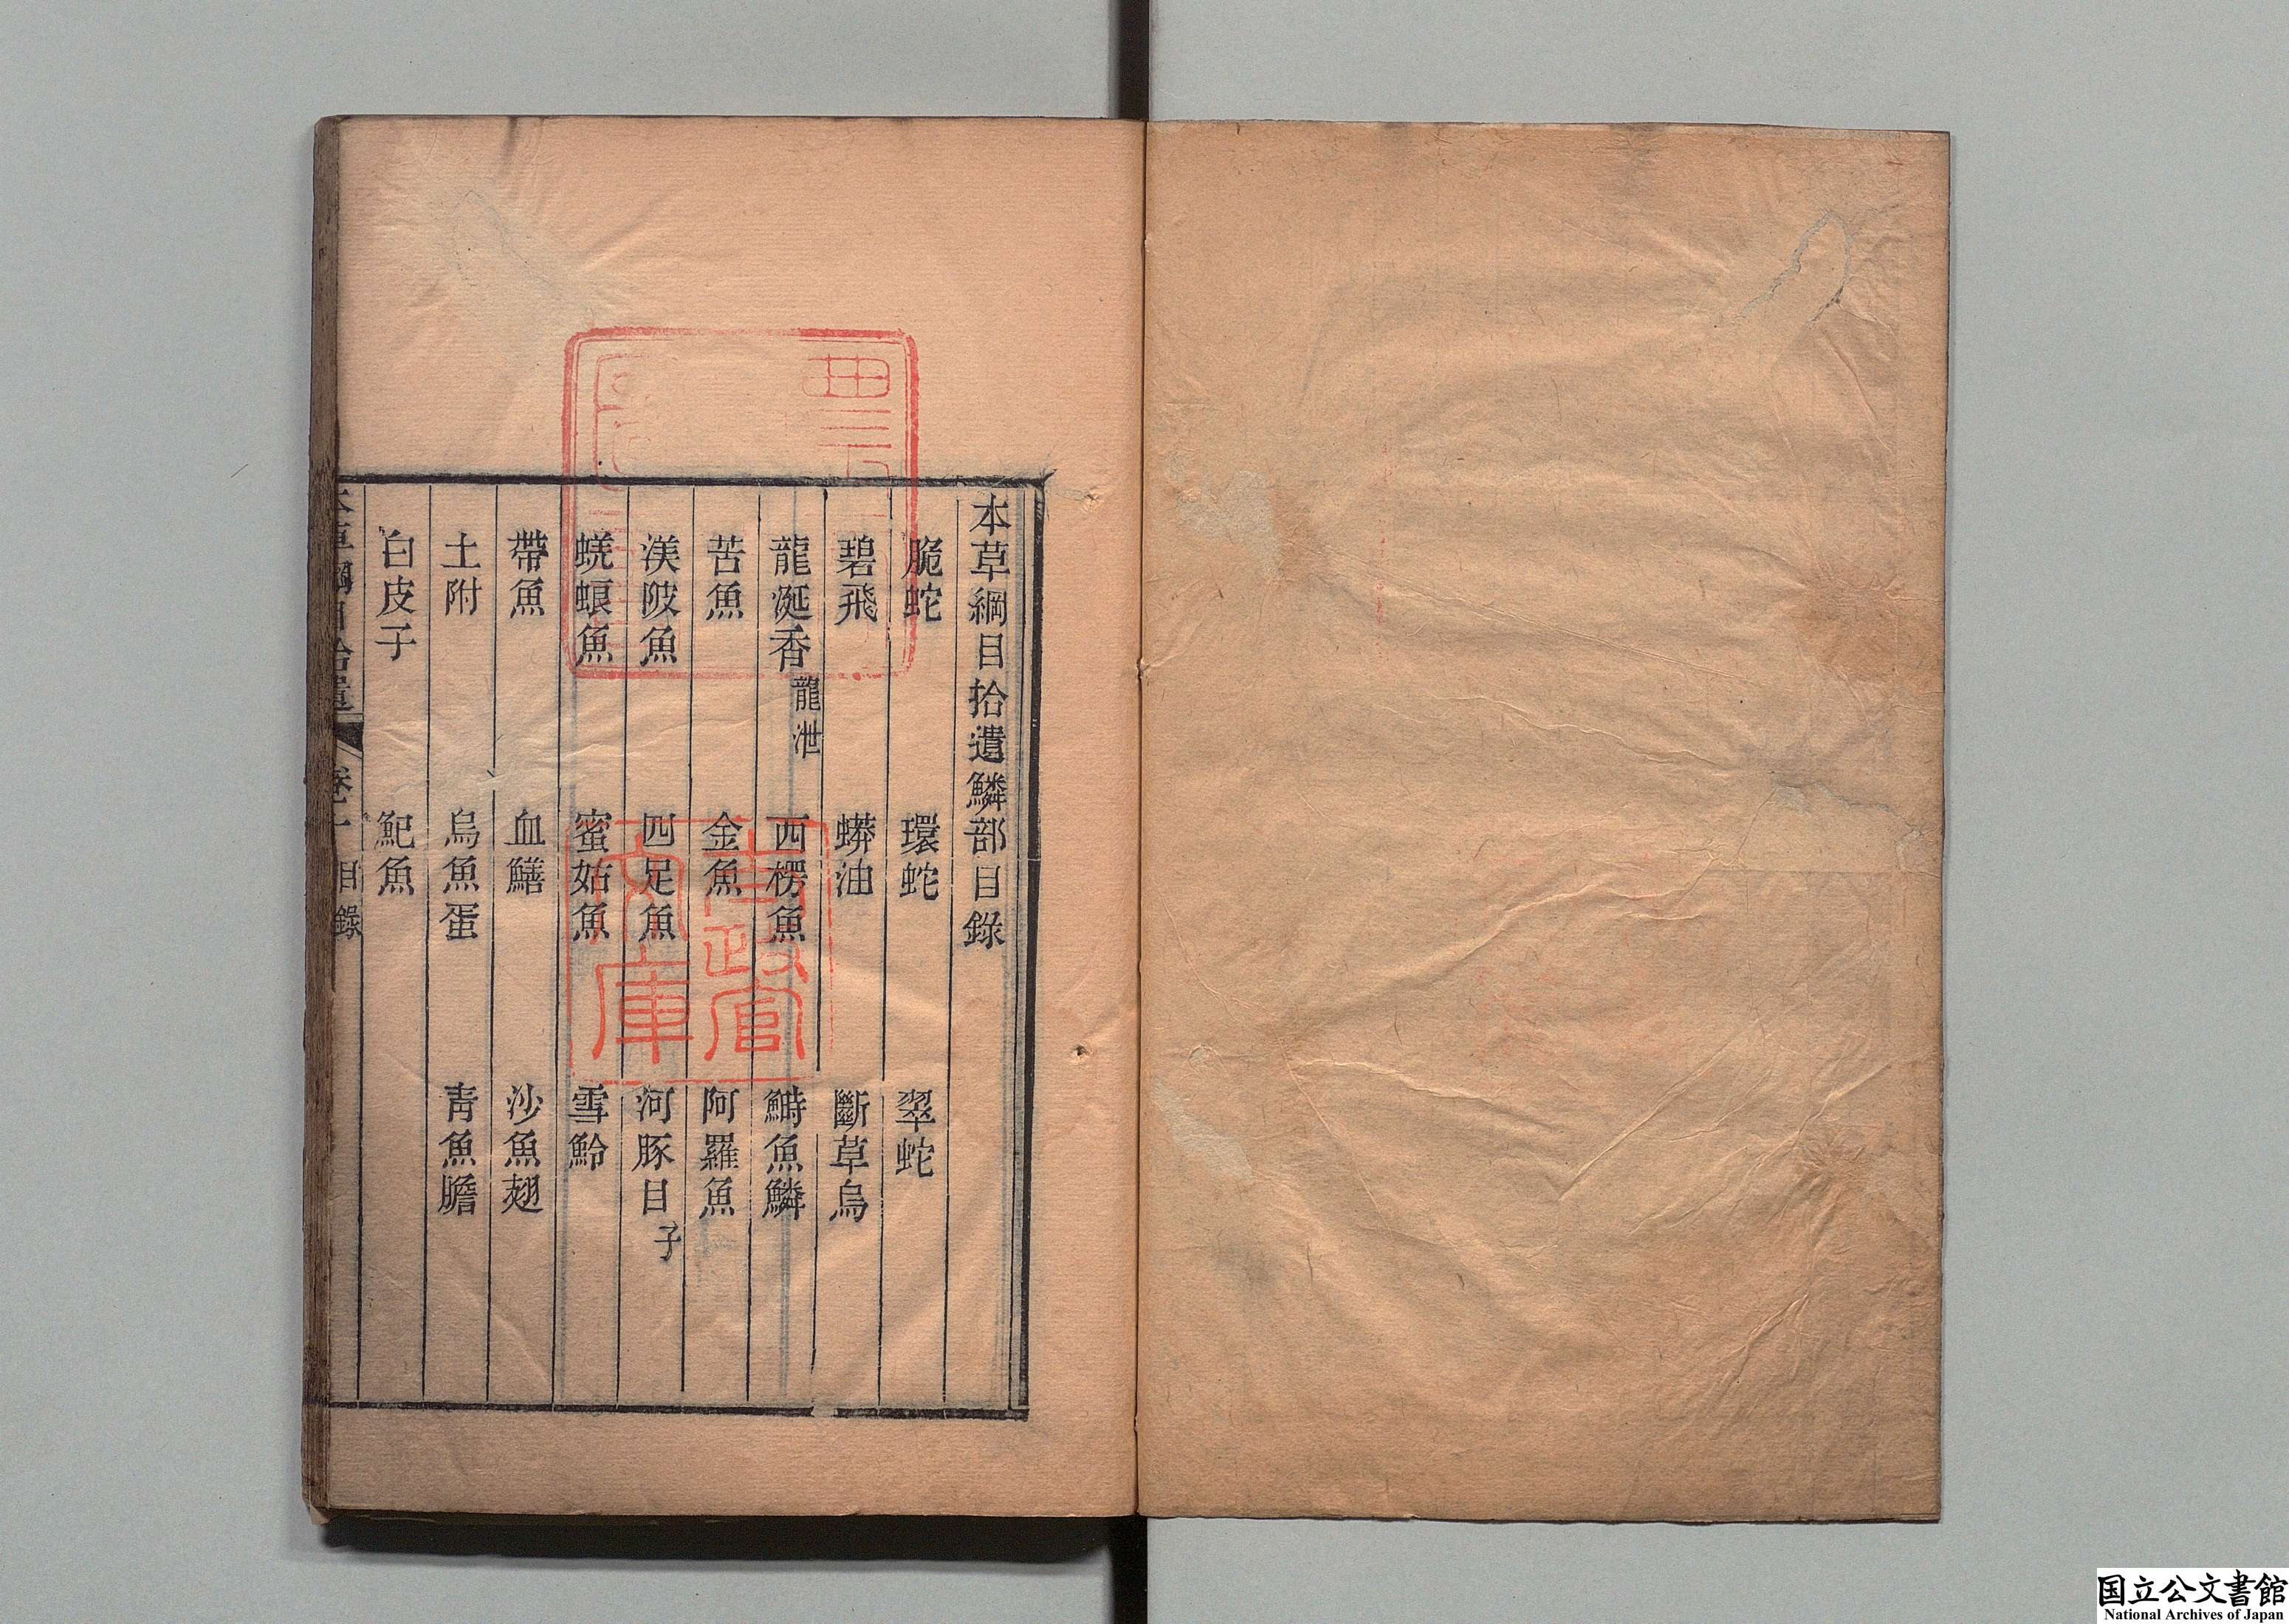 本草綱目拾遺鱗部目錄
脆蛇 環蛇 翠蛇
碧飛 蟒油 斷草烏
龍涎香龍泄 西楞魚 鰣魚鱗
苦魚 金魚 阿羅魚
渼陂魚 四足魚 河豚目子
蜣蜋魚 蜜姑魚 雪魿
帶魚 血鱔 沙魚翅
土附 烏魚蛋 青魚膽
白皮子 魢魚
目錄
太政官文庫
国立公文書館
National Archives of Japan